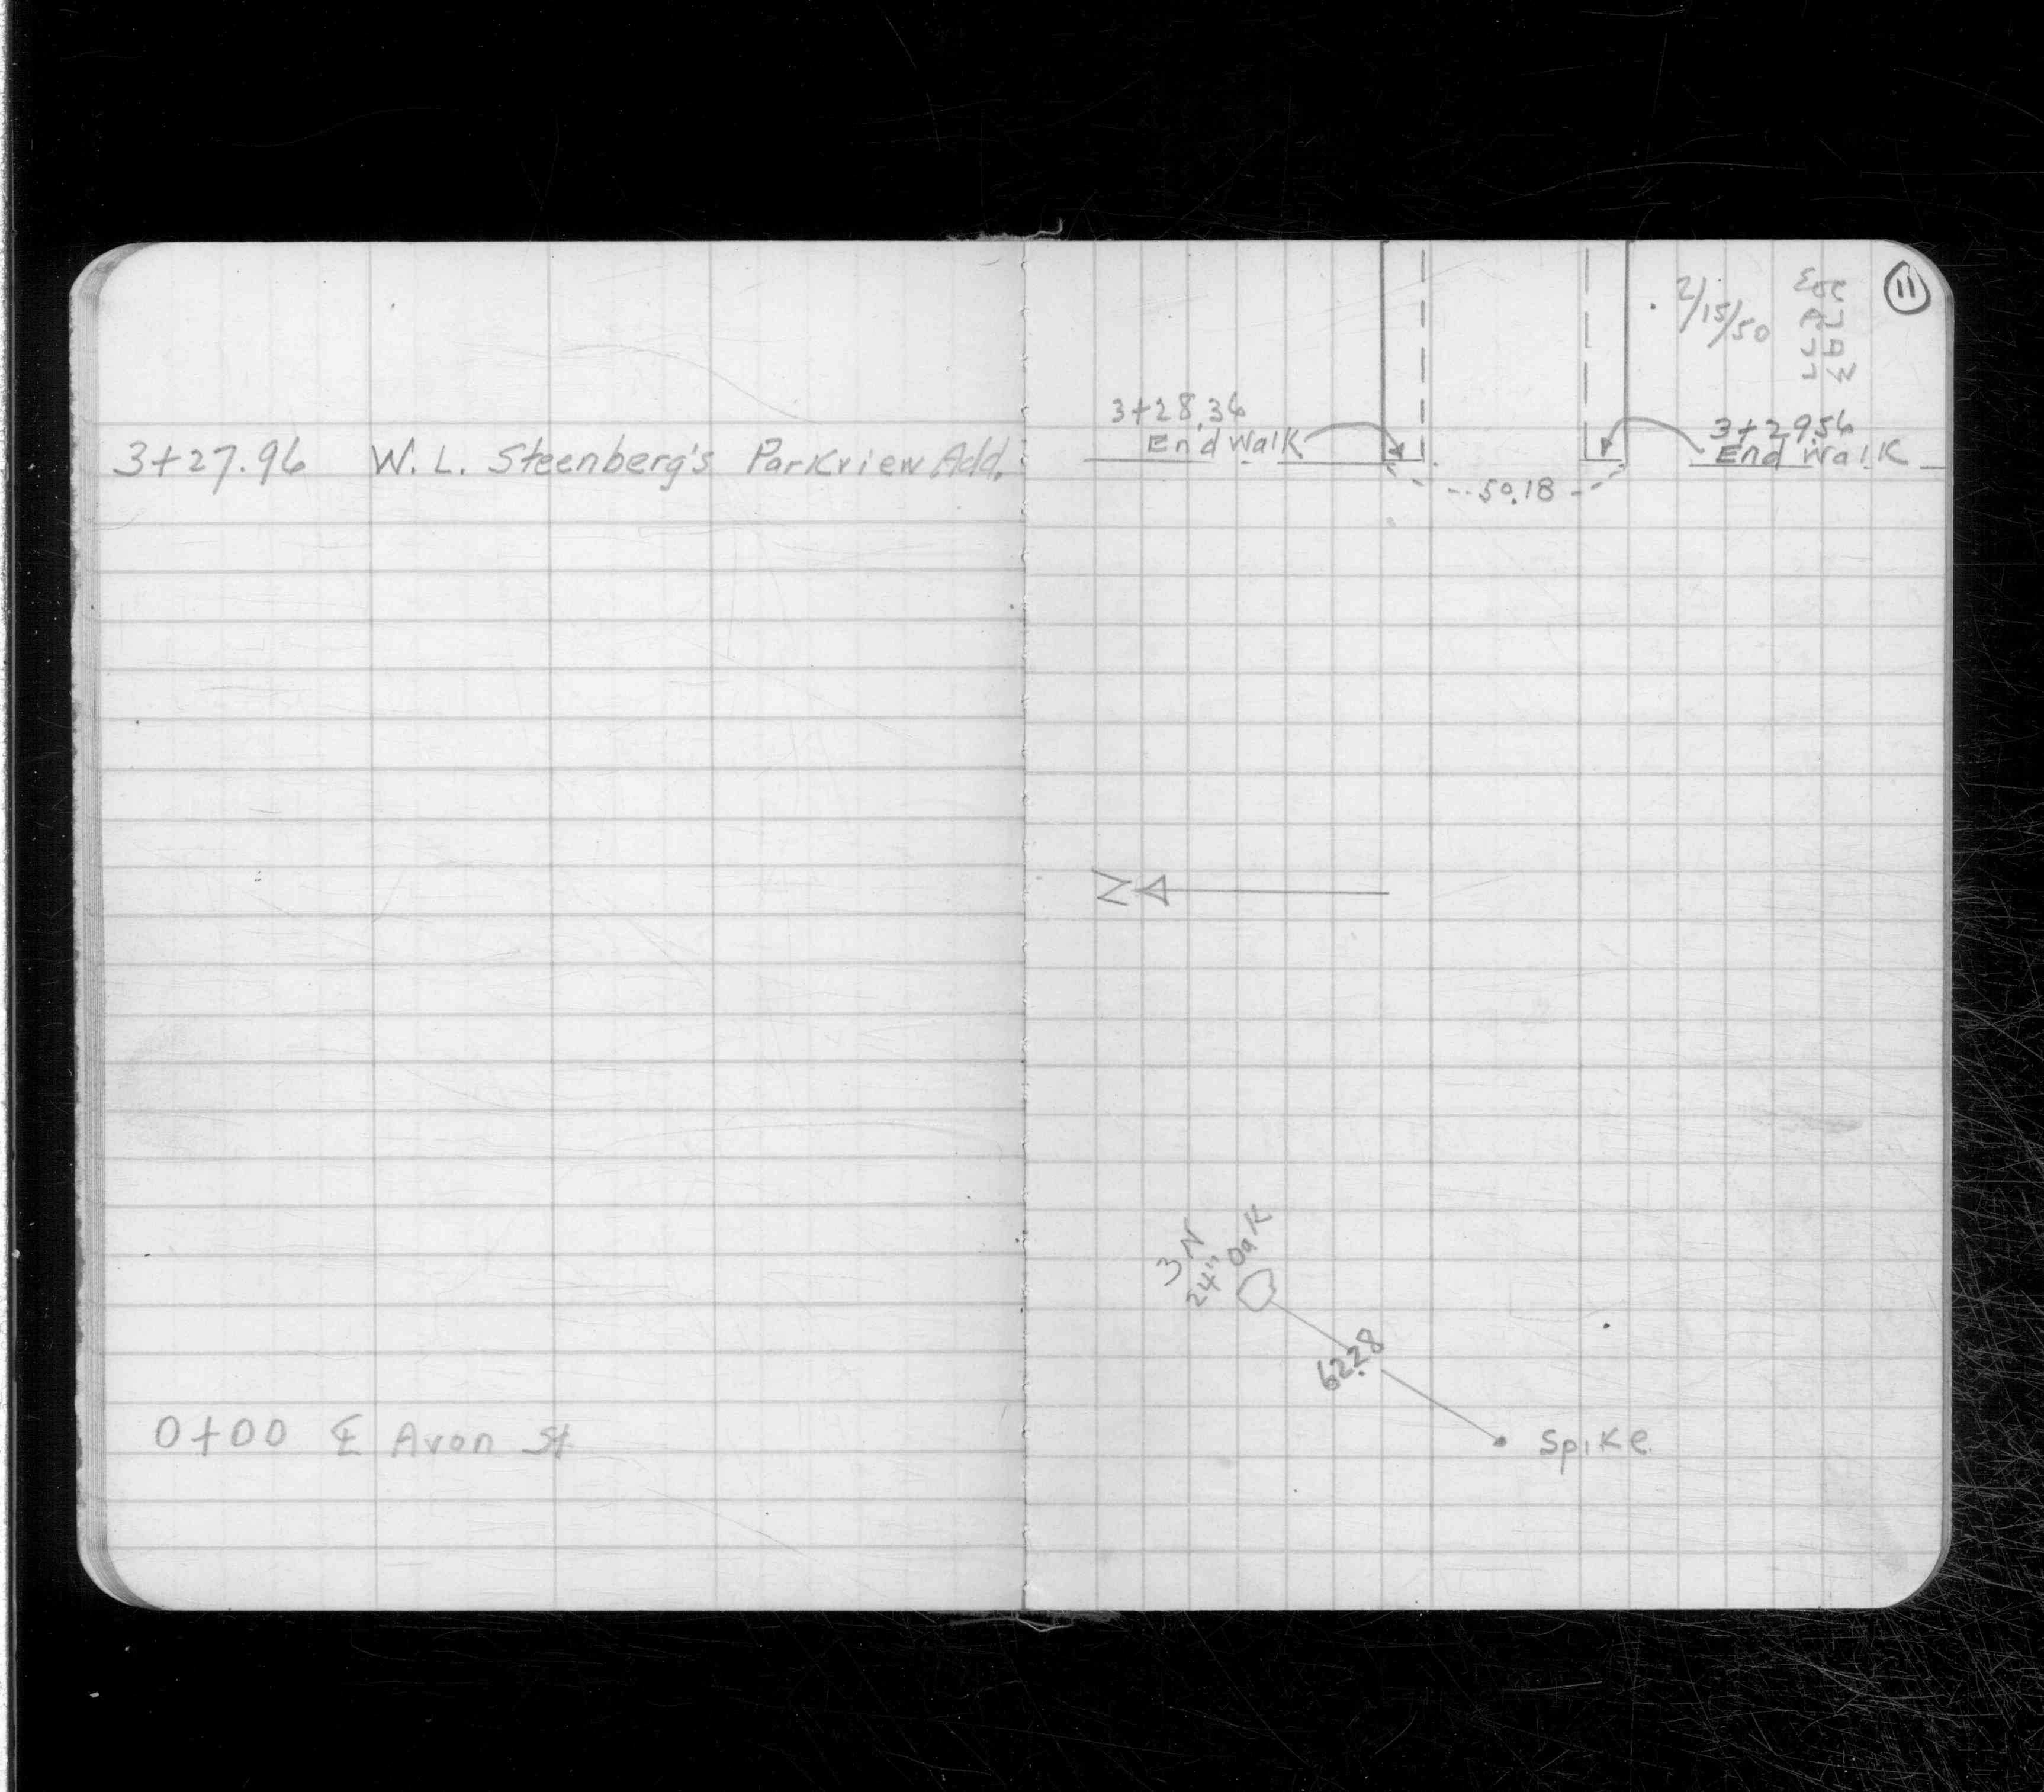 3+27.96 W. L. Steenberg's Parkview Add.
0+00 ℄ Avon St
11
2/15/50
3+28.36
End Walk
3+29.56
End Walk
50.18
N
3 N
24" Oak
62.28
Spike